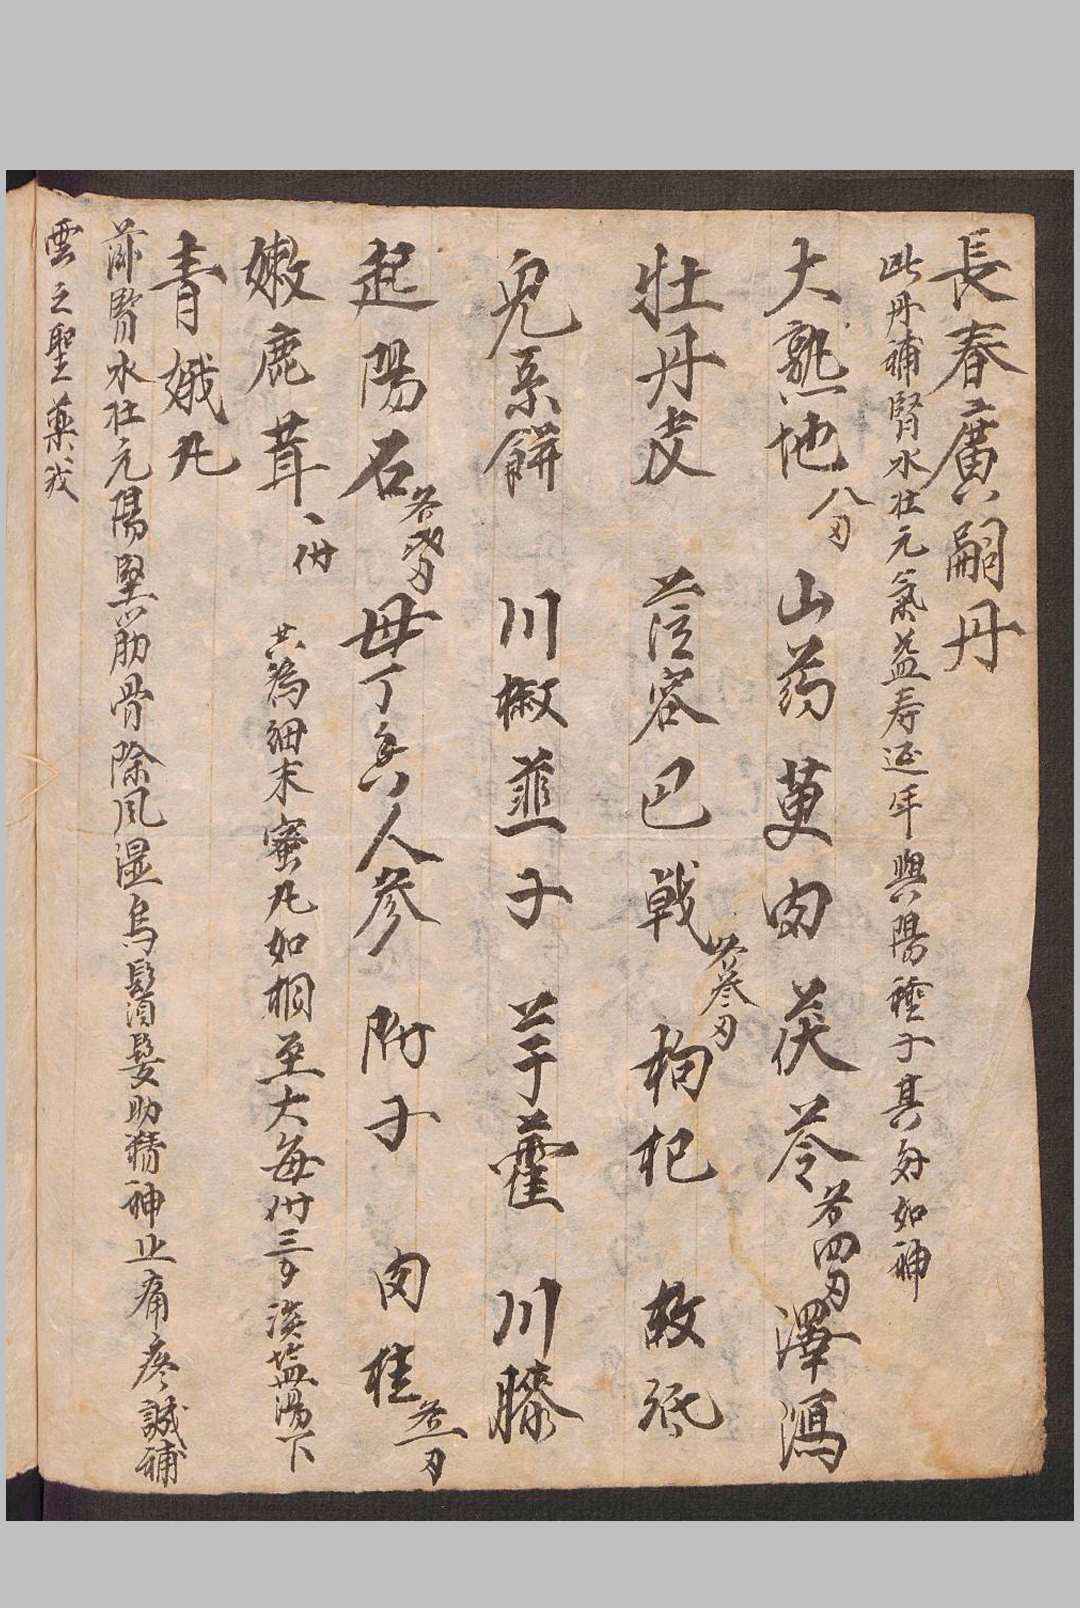 長春廣嗣丹
此丹補腎水壮元氣益寿延年興陽種子其効如神
大熟地八刃山药萸肉茯苓各四刃澤瀉
牡丹皮 苁容巴戟各叁刃枸杞 故紙
兎系餅 川椒韮子 芋藿 川膝
起陽石各弍刃母丁香人参 附子 肉桂各一刃
嫩鹿茸一付 共為細末蜜丸如桐至大每付三𠂇淡盐湯下
青娥丸
滋腎水壮元陽堅筋骨除風湿烏鬚髮助精神止痛疼誠補
雲之聖薬我